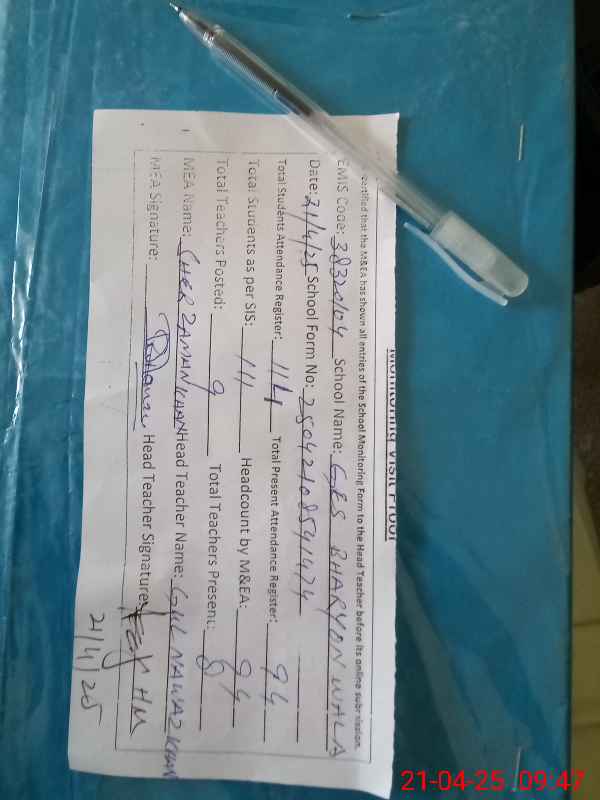 Monitoring Visit Proof
certified that the M&EA has shown all entries of the School Monitoring Form to the Head Teacher before its online submission.
EMIS Code: 38320104 School Name: GES BHARYON WALA
Date: 21/4/25 School Form No: 25042108541474
Total Students Attendance Register: 114 Total Present Attendance Register: 94
Total Students as per SIS: 111 Headcount by M&EA: 94
Total Teachers Posted: 9 Total Teachers Present: 8
MEA Name: SHER ZAMAN KHAN Head Teacher Name: GUL NAWAZ KHAN
MEA Signature: Head Teacher Signature: HM
21/4/25
21-04-25 09:47